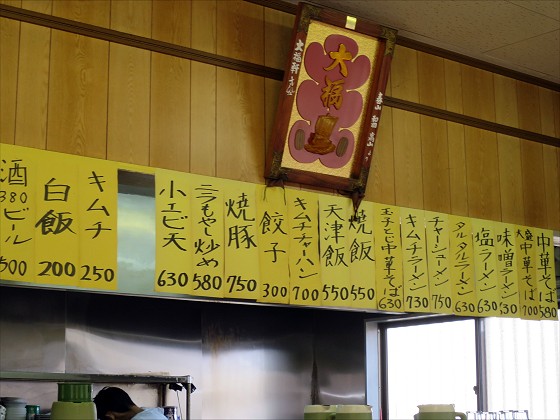 大福
大福軒
中華そば 580
大盛中華そば 700
味噌ラーメン 630
塩ラーメン 630
タルタルラーメン 630
チャーシューメン 750
キムチラーメン 730
玉子とじ中華そば 630
焼飯 550
天津飯 550
キムチチャーハン 700
餃子 300
焼豚 750
ニラもやし炒め 580
小エビ天 630
キムチ 250
白飯 200
酒 380
ビール 500